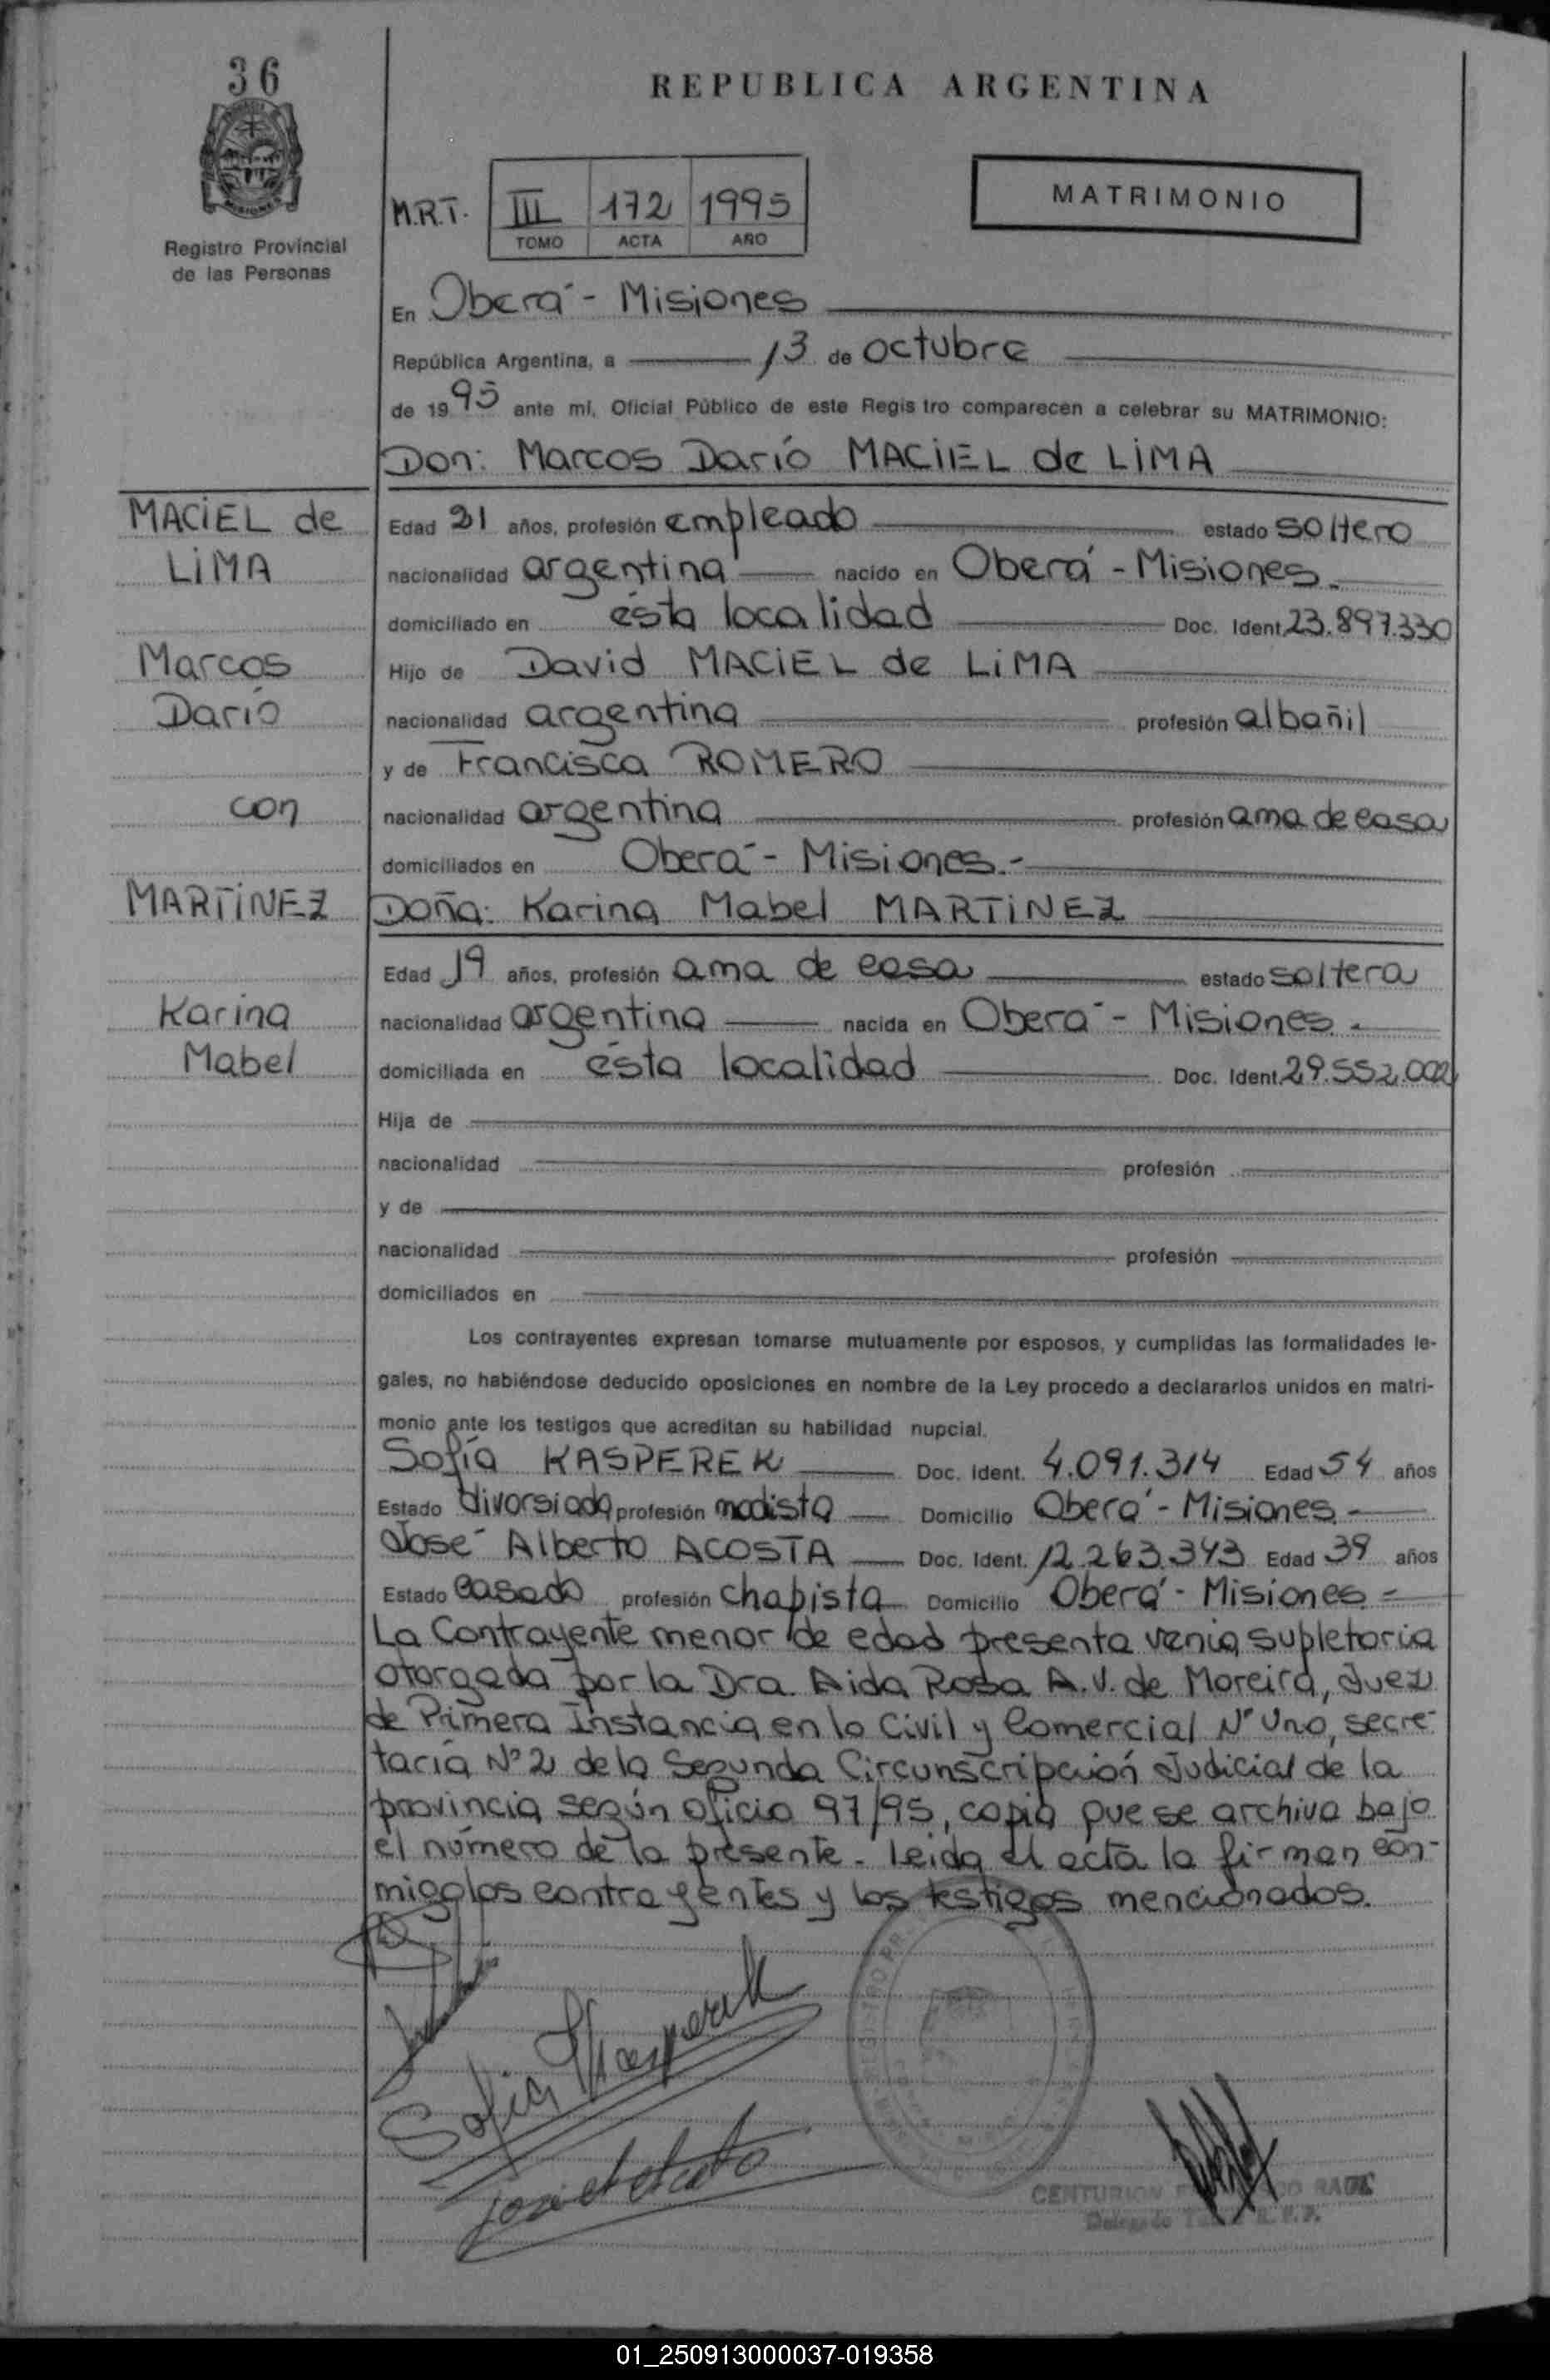 36
REPUBLICA ARGENTINA
MATRIMONIO
M.R.T. III 172 1995
TOMO ACTA AÑO
Registro Provincial
de las Personas
En Oberá - Misiones
República Argentina, a 13 de octubre
de 1995 ante mí, Oficial Público de este Registro comparecen a celebrar su MATRIMONIO:
Don: Marcos Darío MACIEL de LIMA
MACIEL de
LIMA
Marcos
Darío
con
MARTINEZ
Karina
Mabel
Edad 21 años, profesión empleado estado soltero
nacionalidad argentina nacido en Oberá - Misiones.
domiciliado en ésta localidad Doc. Ident. 23.897.330
Hijo de David MACIEL de LIMA
nacionalidad argentina profesión albañil
y de Francisca ROMERO
nacionalidad argentina profesión ama de casa
domiciliados en Oberá - Misiones.-
Doña: Karina Mabel MARTINEZ
Edad 19 años, profesión ama de casa estado soltera
nacionalidad argentina nacida en Oberá - Misiones.
domiciliada en ésta localidad Doc. Ident. 29.552.002
Hija de
nacionalidad profesión
y de
nacionalidad profesión
domiciliados en
Los contrayentes expresan tomarse mutuamente por esposos, y cumplidas las formalidades le-
gales, no habiéndose deducido oposiciones en nombre de la Ley procedo a declararlos unidos en matri-
monio ante los testigos que acreditan su habilidad nupcial.
Sofía KASPEREK Doc. Ident. 4.091.314 Edad 54 años
Estado divorsiada profesión modista Domicilio Oberá - Misiones.-
José Alberto ACOSTA Doc. Ident. 12.263.343 Edad 39 años
Estado casado profesión chapista Domicilio Oberá - Misiones
La Contrayente menor de edad presenta venia supletoria
otorgada por la Dra. Aida Rosa A.V. de Moreira, Juez
de Primera Instancia en lo Civil y Comercial Nº Uno, secre-
taría Nº 2 de la Segunda Circunscripción Judicial de la
provincia según oficio 97/95, copia que se archiva bajo
el número de la presente.- Leida el acta la firman con-
migo los contrayentes y los testigos mencionados.
Sofia Kasperek
CENTURION RAUL
Delegado
01_250913000037-019358